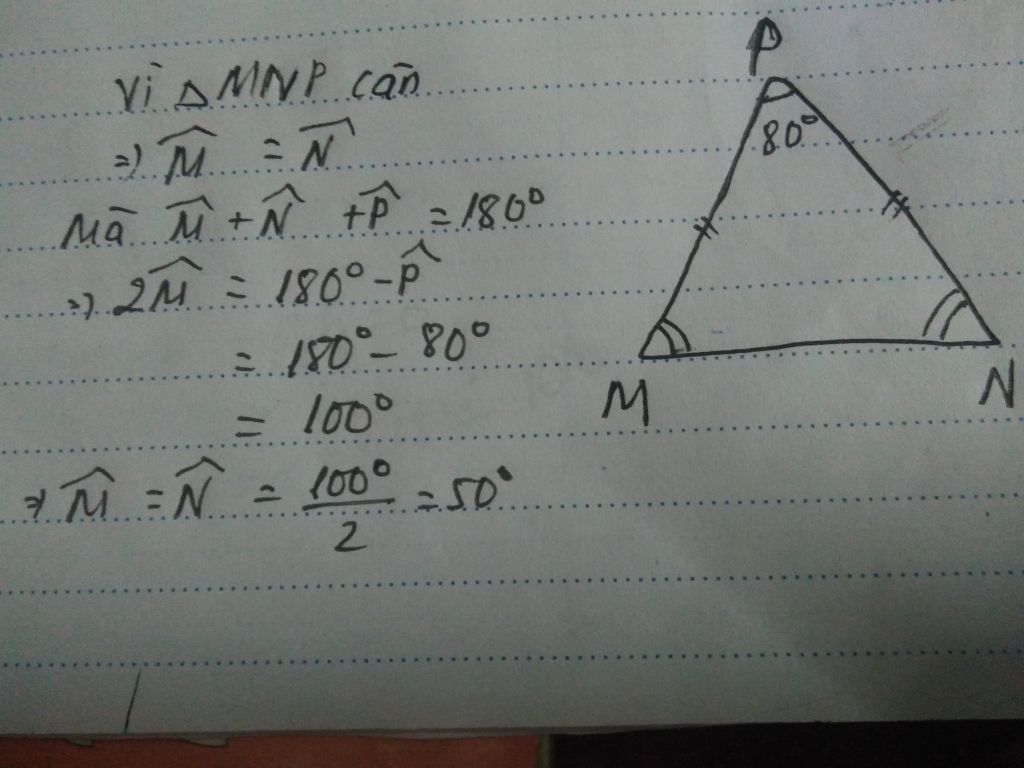 Vì Δ MNP cân
=> M̂ = N̂
Mà M̂ + N̂ + P̂ = 180°
=> 2M̂ = 180° - P̂
= 180° - 80°
= 100°
=> M̂ = N̂ = 100°/2 = 50°
P
80°
M
N